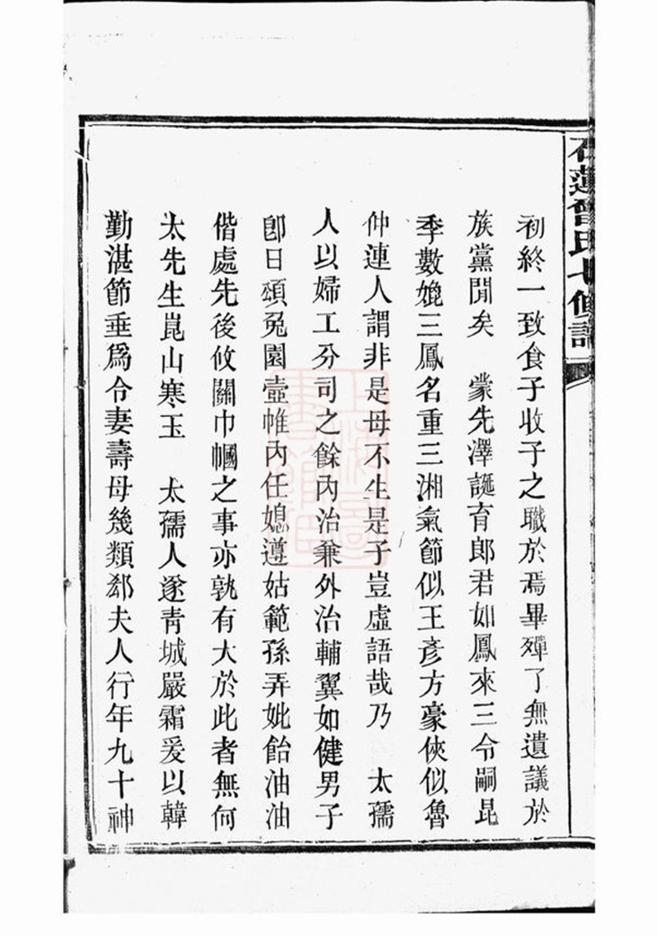 石蓮曾氏七修譜
初終一致食子收子之職於焉畢殫了無遺議於
族黨閒矣　蒙先澤誕育郎君如鳳來三令嗣昆
季數媲三鳳名重三湘氣節似王彥方豪俠似魯
仲連人謂非是母不生是子豈虛語哉乃　太孺
人以婦工分司之餘內治兼外治輔翼如健男子
卽日頌兔園壺帷內任媳遵姑範孫弄妣飴油油
偕處先後攸關巾幗之事亦孰有大於此者無何
太先生崑山寒玉　太孺人遂青城嚴霜爰以韓
勤湛節垂爲令妻壽母幾類郄夫人行年九十神